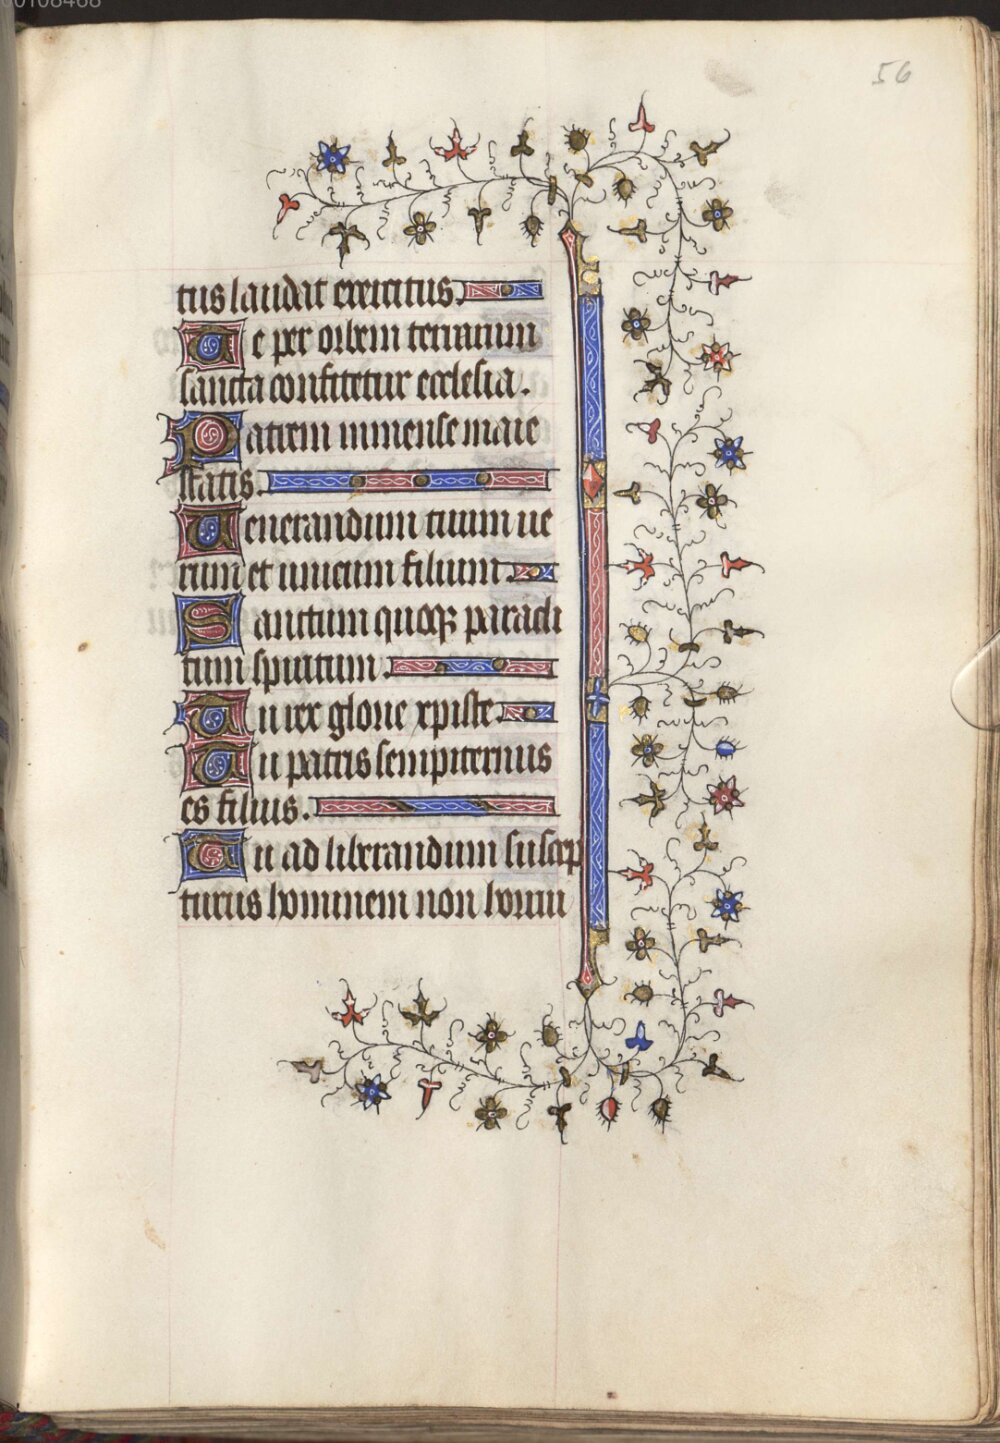 00108468
56
tus laudat exercitus.
Te per orbem terrarum
sancta confitetur ecclesia.
Patrem inmense maie
statis.
Uenerandum tuum ue
rum et unicum filium.
Sanctum quoqꝫ paracli
tum spiritum.
Tu rex glorie xpiste.
Tu patris sempiternus
es filius.
Tu ad liberandum suscep
turus hominem non horrui